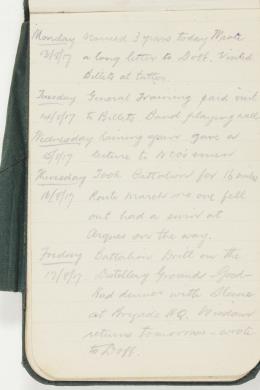 Monday married 3 years today Wrote
13/8/17 a long letter to Doff. Visited
Billets at tatten.
Tuesday General Training paid visit
14/8/17 to Billets Band playing well
Wednesday Raining again gave a
15/8/17 lecture to NCOs &
Thursday Took Battalion for 16 miles
16/8/17 Route march no one fell
out had a swim at
Arques on the way.
Friday Battalion Drill on the
17/8/17 Distillery Grounds Good
Had dinner with
at Brigade HQ.
returns tomorrow - wrote
to Doff.